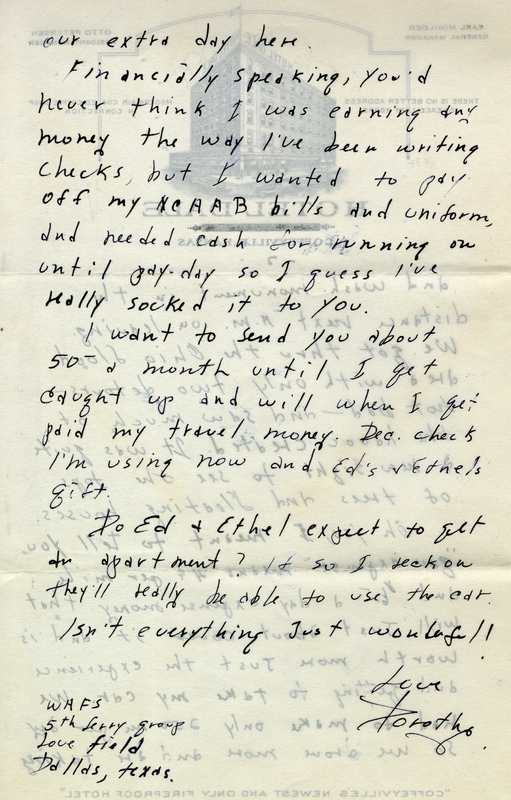 our extra day here.
Financially speaking, you'd
never think I was earning any
money the way I've been writing
checks, but I wanted to pay
off my NCAAB bills and uniform,
and needed cash for running on
until pay-day so I guess I've
really socked it to you.
I want to send you about
50- a month until I get
caught up and will when I get
paid my travel money. Dec. check
I'm using now and Ed's & Ethel's
gift.
Do Ed & Ethel expect to get
an apartment? If so I reckon
they'll really be able to use the car.
Isn't everything Just wonderful!
Love
Dorothy.
WAFS
5th Ferry group
Love Field
Dallas, Texas.